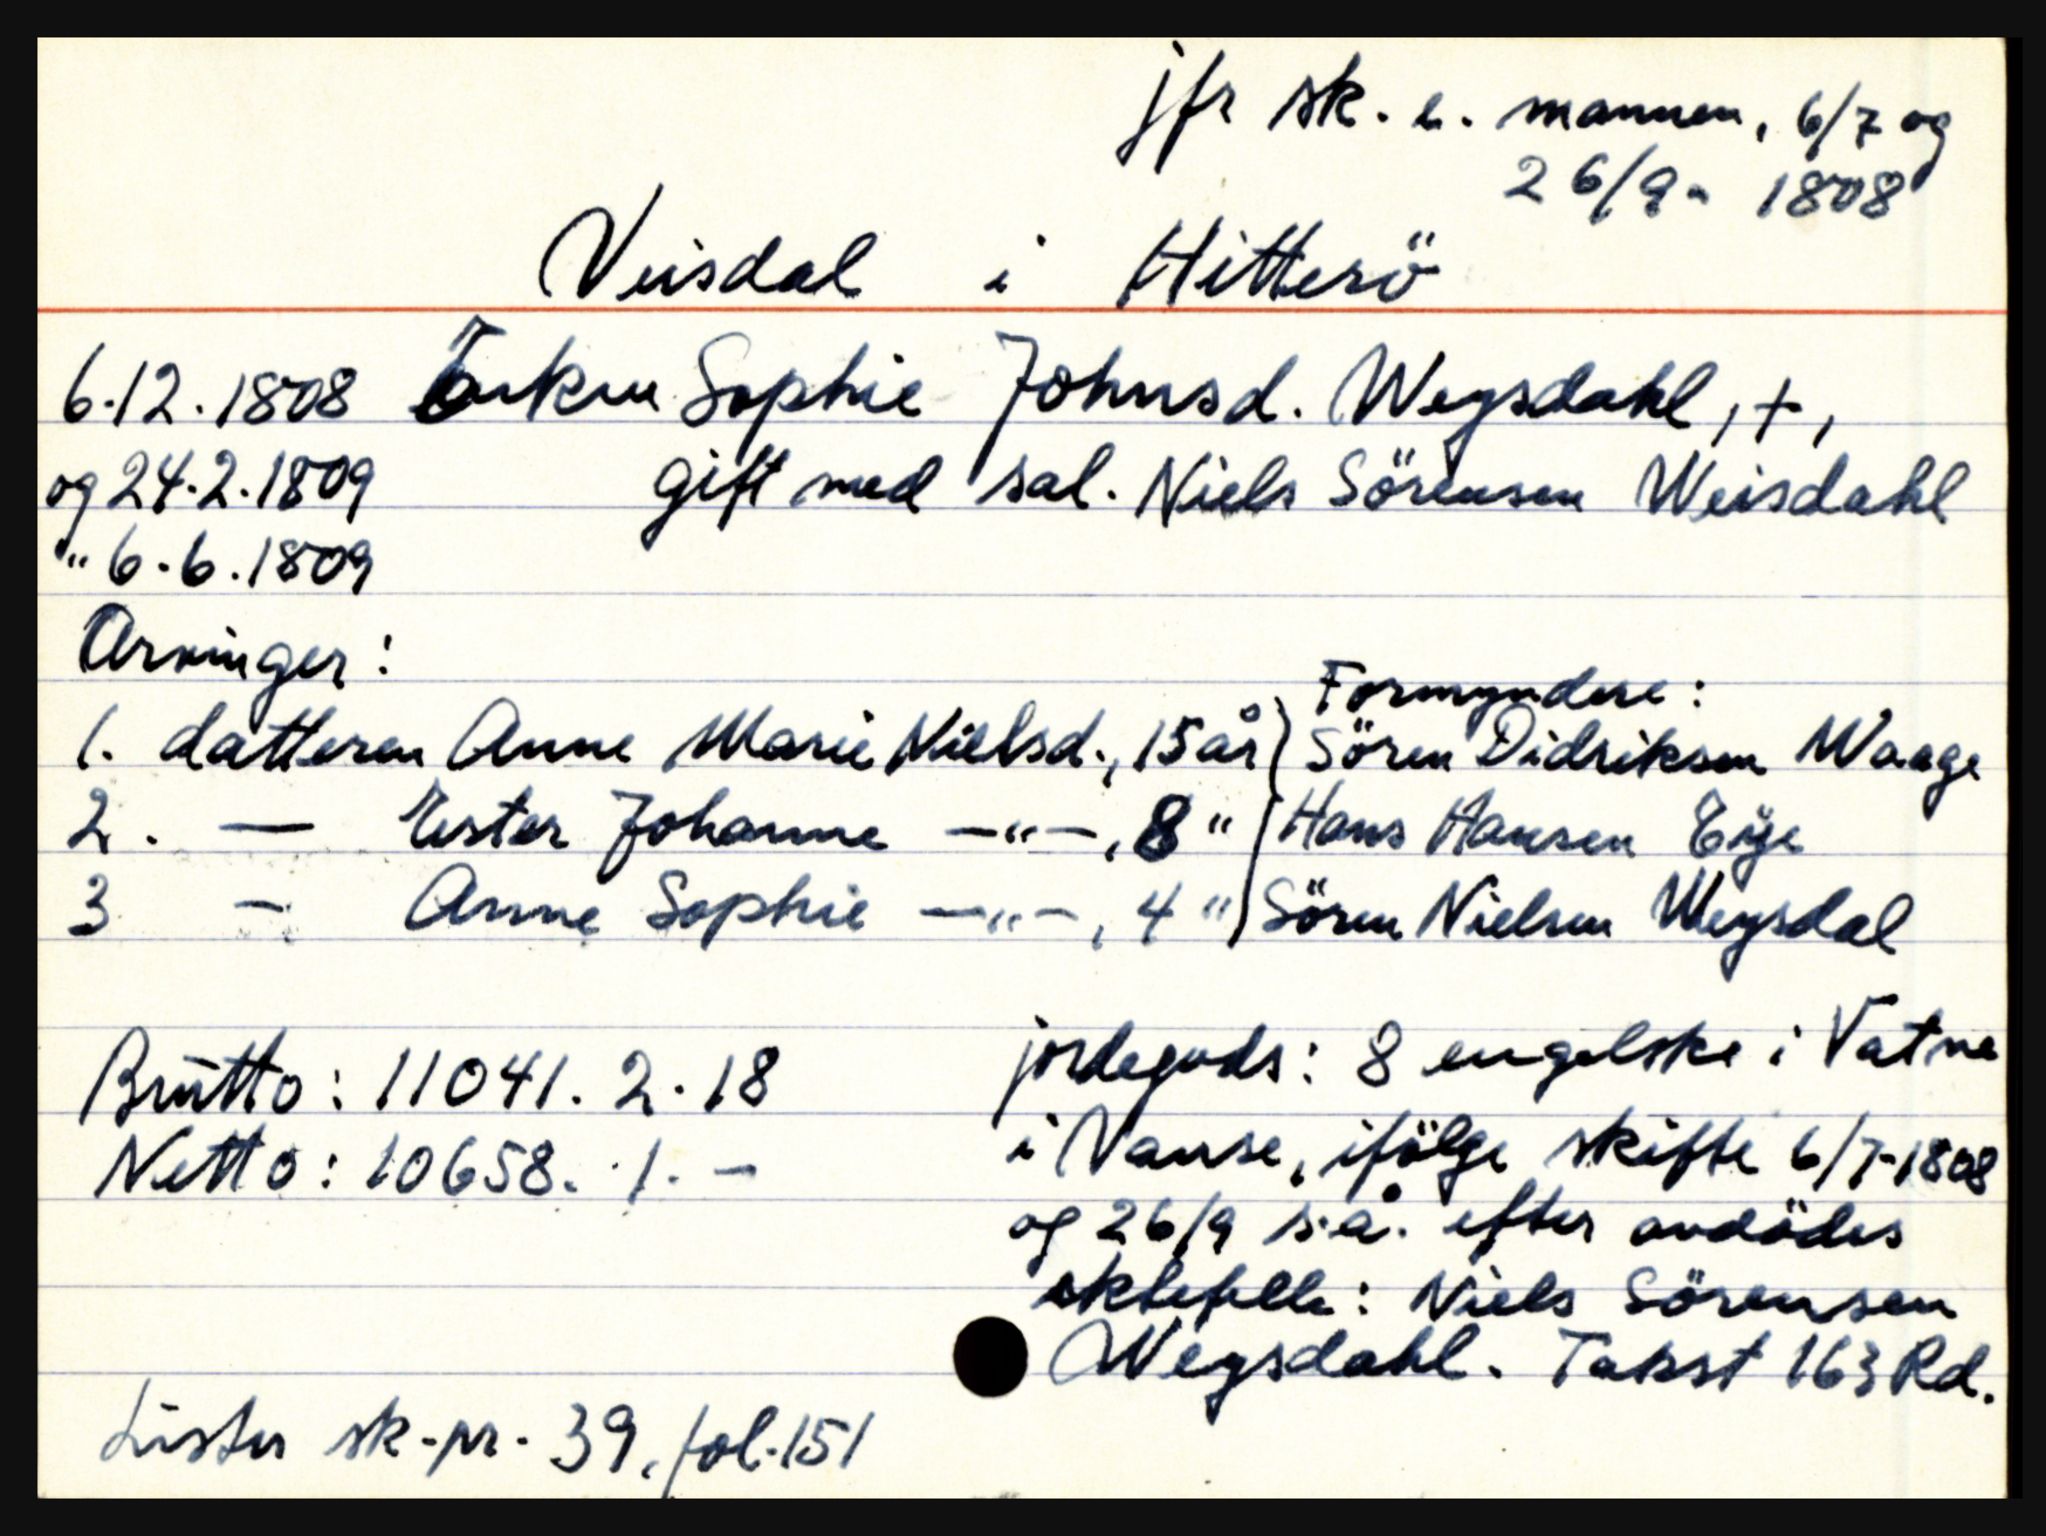 jfr sk. e. mannen, 6/7 og
26/9 - 1808
Veisdal i Hitterö
6.12.1808 Enken Sophie Johnsd. Weysdahl, +,
og 24.2.1809 gift med sal. Niels Sörensen Weisdahl
" 6.6.1809
Arvinger:
Formyndere:
1. datteren Anne Marie Nielsd., 15 år Sören Didriksen Waage
2. — Ester Johanne —"—, 8 " Hans Hansen Eÿe
3 — Anne Sophie —"—, 4 " Sören Nielsen Weysdal
Brutto: 11041. 2. 18
jordegods: 8 engelske i Vatne
Netto: 10658. 1. —
i Vanse, ifölge skifte 6/7-1808
og 26/9 s.å. efter avdödes
ektefelle: Niels Sörensen
Weysdahl. Takst 163 Rd.
Lister sk.pr. 39, fol. 151